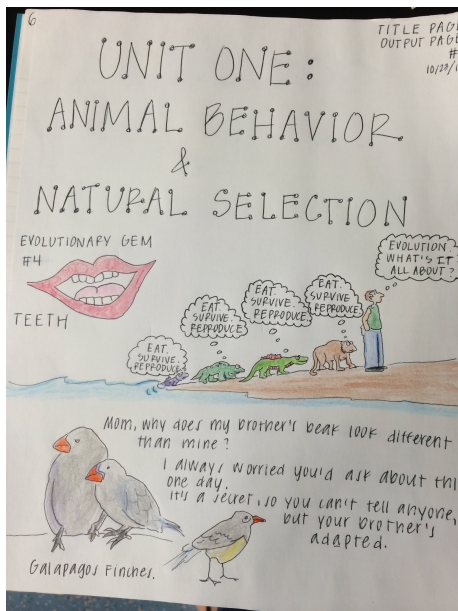 6
TITLE PAGE
OUTPUT PAGE
#
10/28/1
UNIT ONE:
ANIMAL BEHAVIOR
&
NATURAL SELECTION
EVOLUTIONARY GEM
#4
TEETH
EAT.
SURVIVE.
REPRODUCE
EAT.
SURVIVE.
REPRODUCE
EAT.
SURVIVE.
REPRODUCE.
EAT.
SURVIVE.
REPRODUCE
EVOLUTION.
WHAT'S IT
ALL ABOUT?
Mom, why does my brother's beak look different
than mine?
I always worried you'd ask about thi
one day.
It's a secret, so you can't tell anyone,
but your brother's
adapted.
Galapagos Finches.